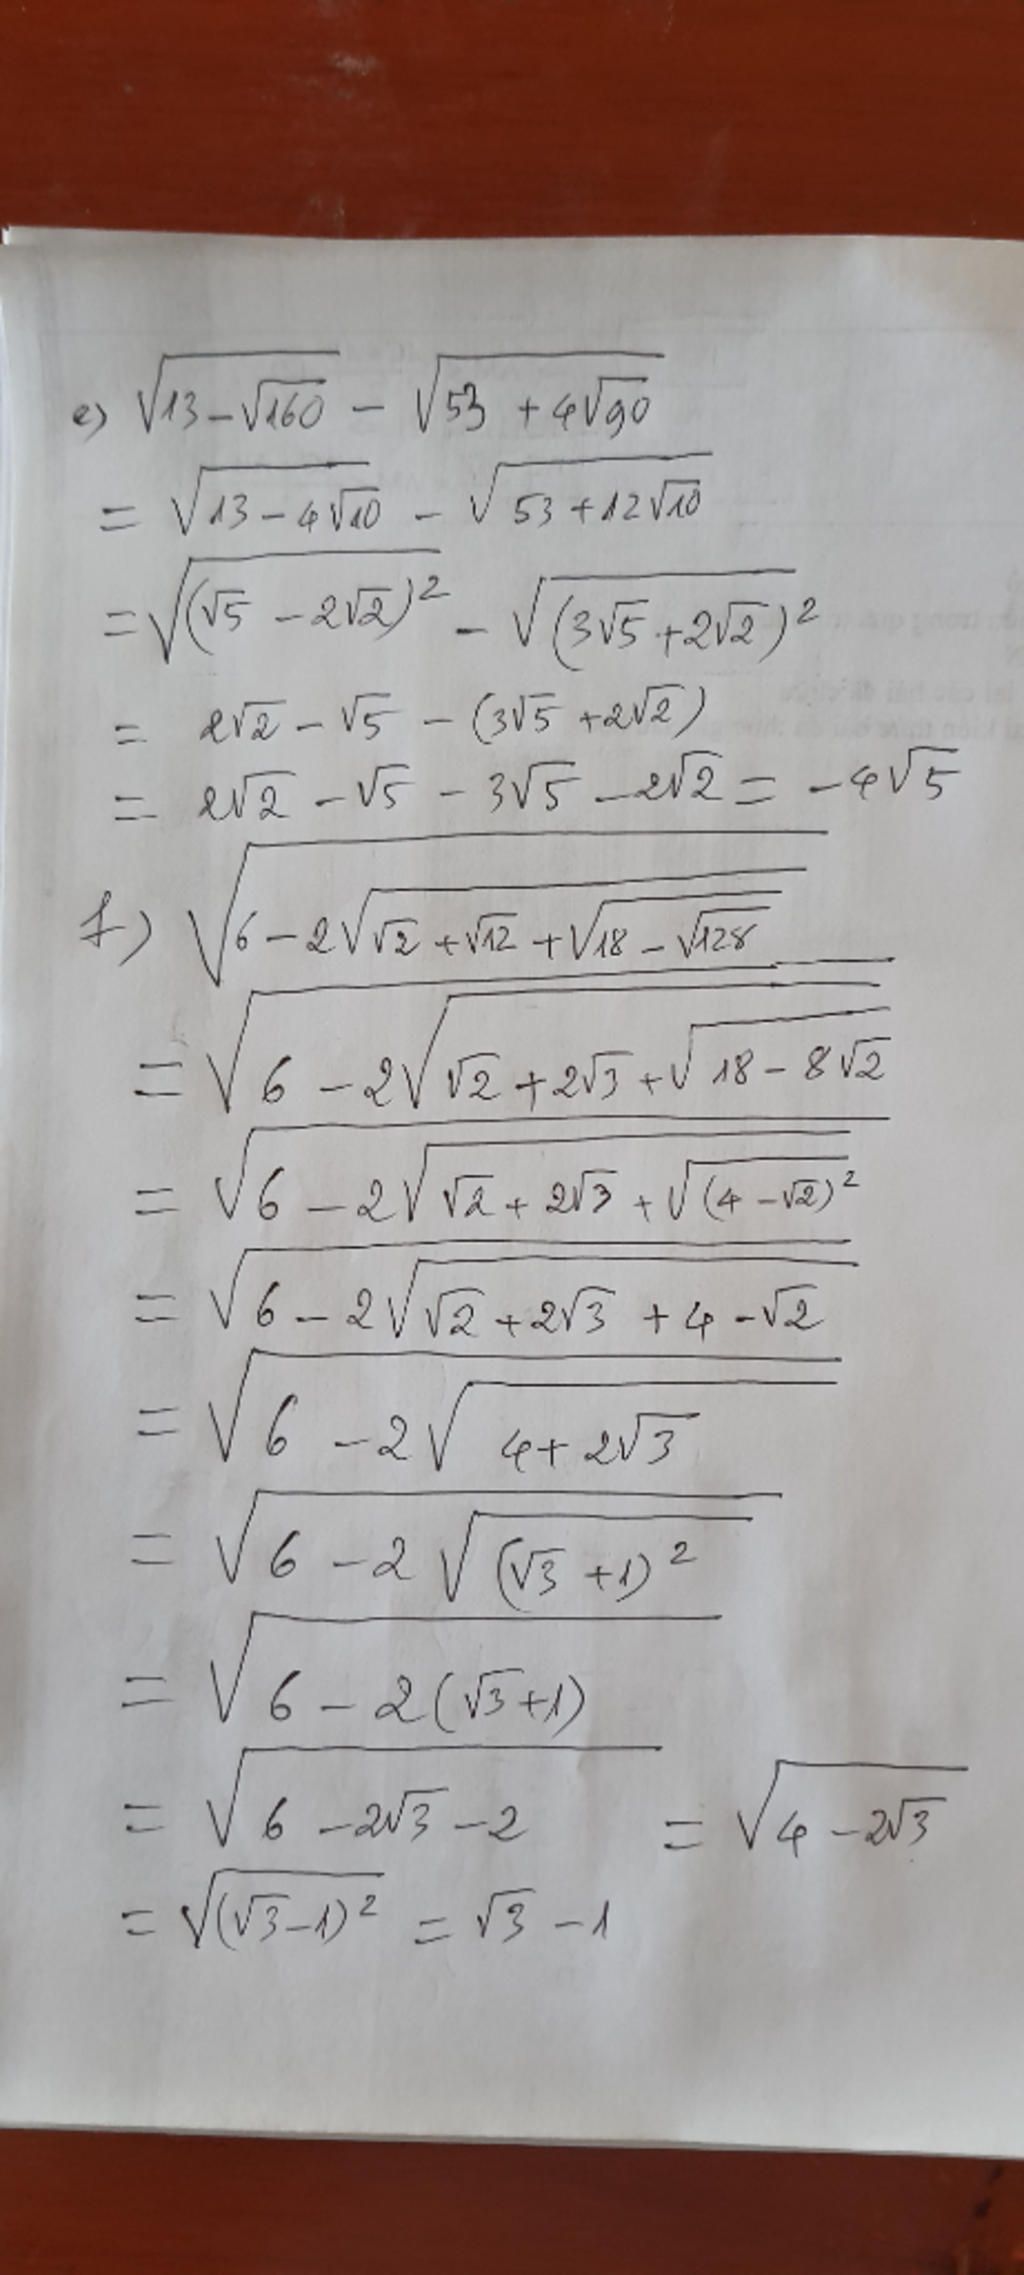 e) √(13 - √160) - √(53 + 4√90)
= √(13 - 4√10) - √(53 + 12√10)
= √((√5 - 2√2)²) - √((3√5 + 2√2)²)
= 2√2 - √5 - (3√5 + 2√2)
= 2√2 - √5 - 3√5 - 2√2 = -4√5
f) √(6 - 2√(√2 + √12 + √(18 - √128)))
= √(6 - 2√(√2 + 2√3 + √(18 - 8√2)))
= √(6 - 2√(√2 + 2√3 + √((4 - √2)²)))
= √(6 - 2√(√2 + 2√3 + 4 - √2))
= √(6 - 2√(4 + 2√3))
= √(6 - 2√((√3 + 1)²))
= √(6 - 2(√3 + 1))
= √(6 - 2√3 - 2) = √(4 - 2√3)
= √((√3 - 1)²) = √3 - 1